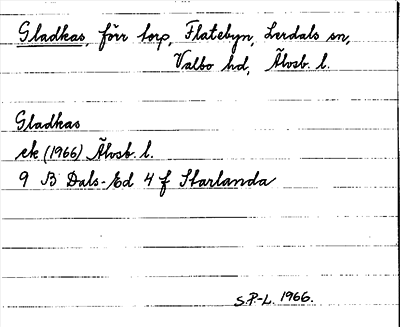 Gladkas, förr torp, Flatebyn, Lerdals sn,
Valbo hd, Älvsb. l.
Gladkas
ek (1966) Älvsb. l.
9 B Dals-Ed 4 f Starlanda
S.P-L. 1966.